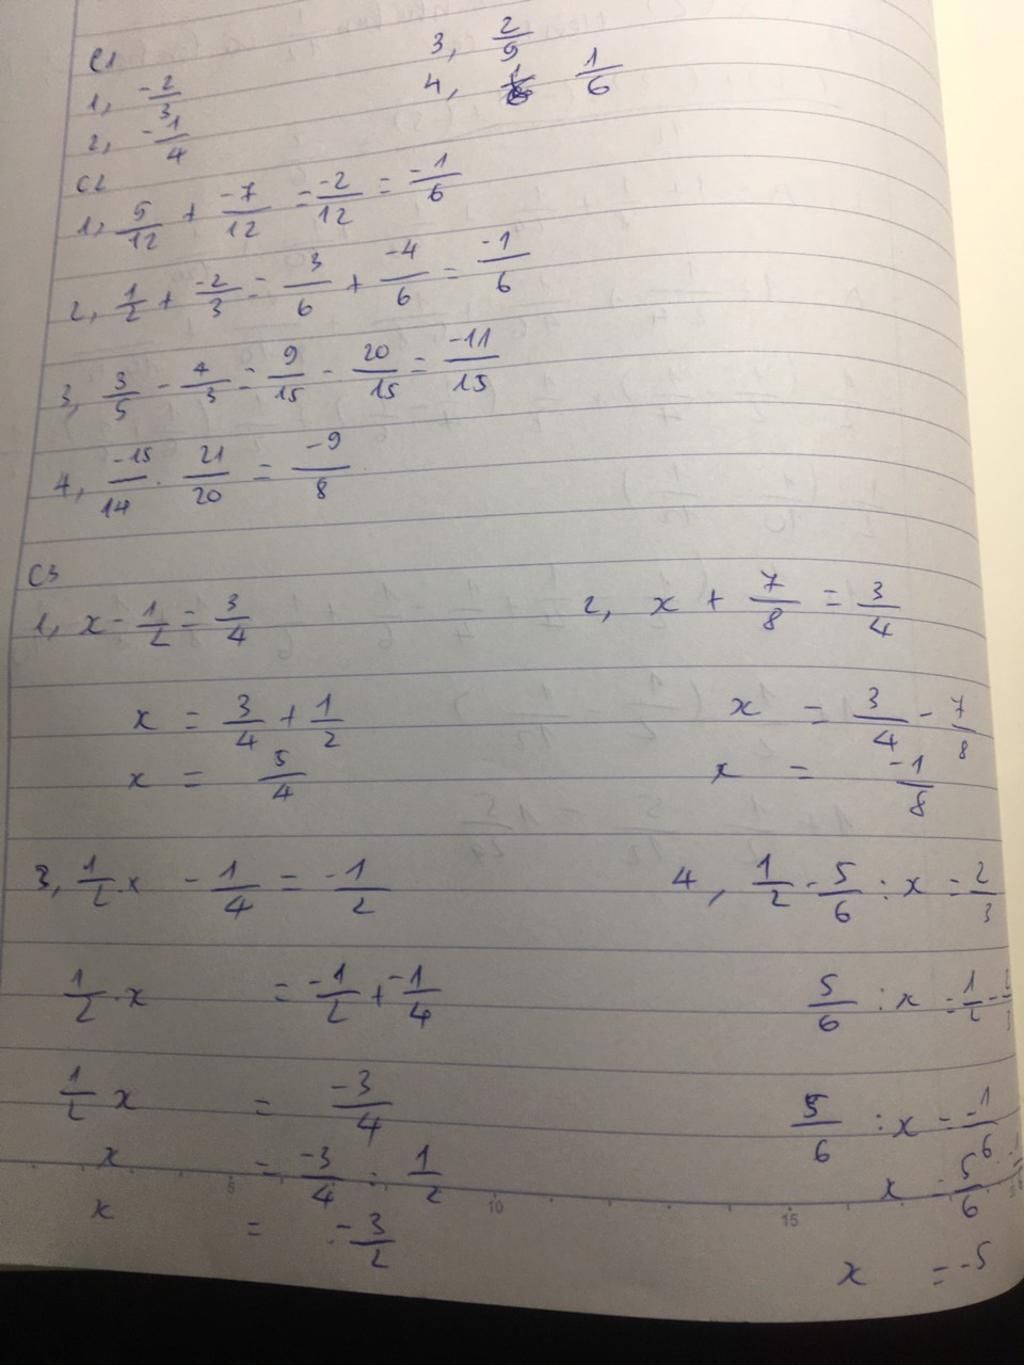 C1
1, -2/3
2, -1/4
3, 2/9
4, 1/6
C2
1, 5/12 + -7/12 = -2/12 = -1/6
2, 1/2 + -2/3 = 3/6 + -4/6 = -1/6
3, 3/5 - 4/3 = 9/15 - 20/15 = -11/15
4, -15/14 . 21/20 = -9/8
C3
1, x - 1/2 = 3/4
x = 3/4 + 1/2
x = 5/4
2, x + 7/8 = 3/4
x = 3/4 - 7/8
x = -1/8
3, 1/2 . x - 1/4 = -1/2
1/2 . x = -1/2 + -1/4
1/2 x = -3/4
x = -3/4 : 1/2
x = -3/2
4, 1/2 - 5/6 : x = 2/3
5/6 : x = 1/2 - 2/3
5/6 : x = -1/6
x = 5/6 :
x = -5
5 10 15